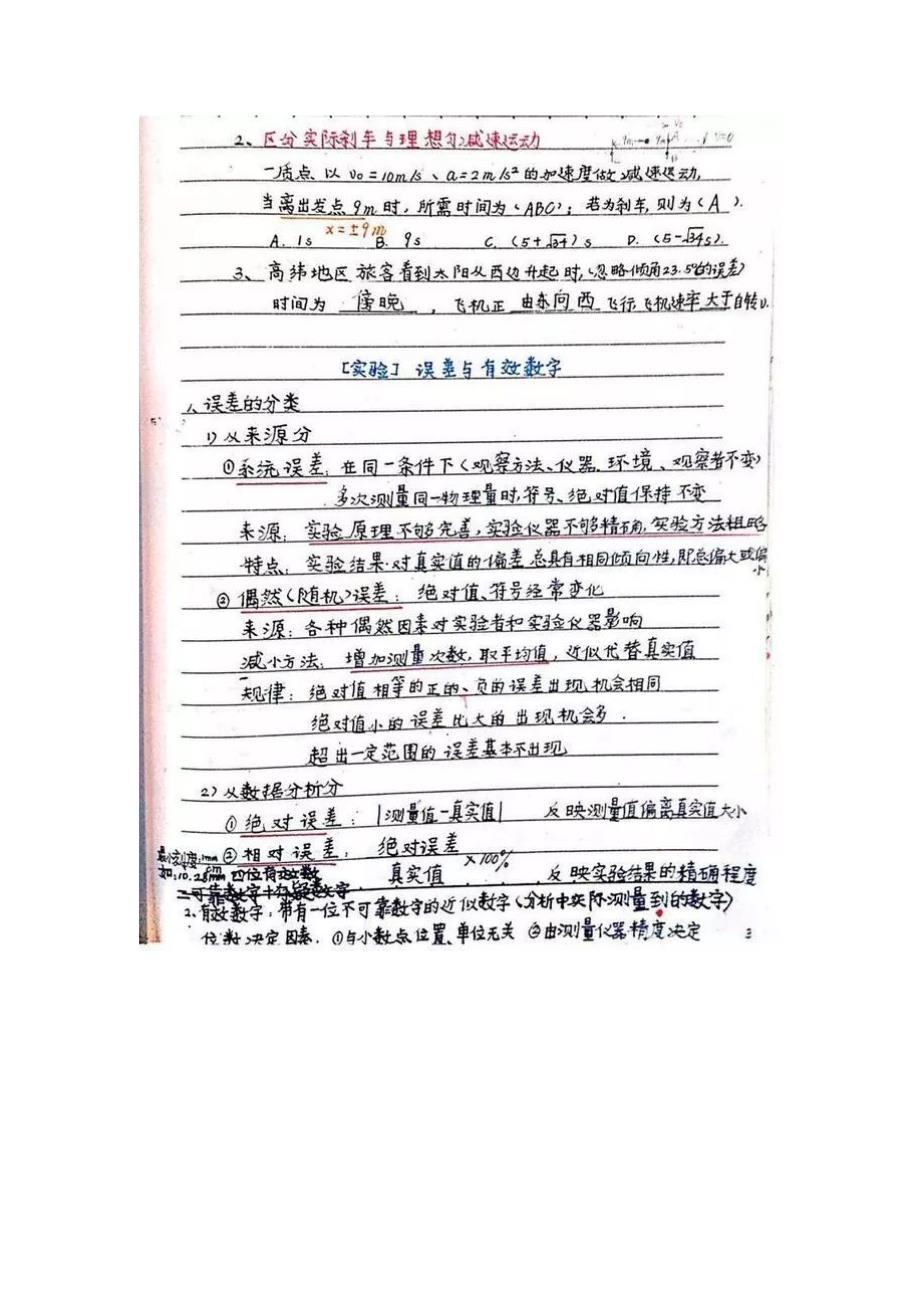 2、区分实际刹车与理想匀减速运动
一质点以 v₀=10m/s、a=2m/s²的加速度做减速运动,
当离出发点9m时,所需时间为(ABC);若为刹车,则为(A).
x=±9m
A. 1s B. 9s C. (5+√34)s D. (5-√34s).
3、高纬地区旅客看到太阳从西边升起时,(忽略倾角23.5°的误差)
时间为 傍晚 ,飞机正 由东向西 飞行,飞机速率大于自转v.
[实验] 误差与有效数字
1、误差的分类
1) 从来源分
①系统误差:在同一条件下(观察方法、仪器、环境、观察者不变)
多次测量同一物理量时,符号、绝对值保持不变
来源:实验原理不够完善,实验仪器不够精确,实验方法粗略
特点:实验结果对真实值的偏差总具有相同倾向性,即总偏大或偏小
②偶然(随机)误差:绝对值、符号经常变化
来源:各种偶然因素对实验者和实验仪器影响
减小方法:增加测量次数,取平均值,近似代替真实值
规律:绝对值相等的正的、负的误差出现机会相同
绝对值小的误差比大的出现机会多.
超出一定范围的误差基本不出现
2) 从数据分析分
①绝对误差:|测量值-真实值| 反映测量值偏离真实值大小
②相对误差:绝对误差
真实值 ×100% ,反映实验结果的精确程度
最小刻度:1mm
四位有效数
=可靠数字+存疑数字
2、有效数字:带有一位不可靠数字的近似数字(分析中实际测量到的数字)
位数决定因素. ①与小数点位置、单位无关 ②由测量仪器精度决定
3